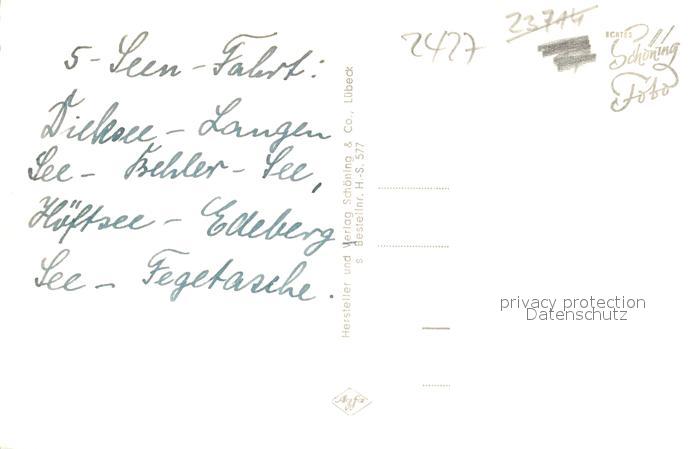 5-Seen-Fahrt:
Dieksee - Langen
See - Behler - See,
Höftsee - Edeberg
See - Fegetasche.
Hersteller und Verlag Schöning & Co., Lübeck
s Bestellnr. H.-S. 577
2427
23714
ECHTES
Schöning
Foto
privacy protection
Datenschutz
Agfa